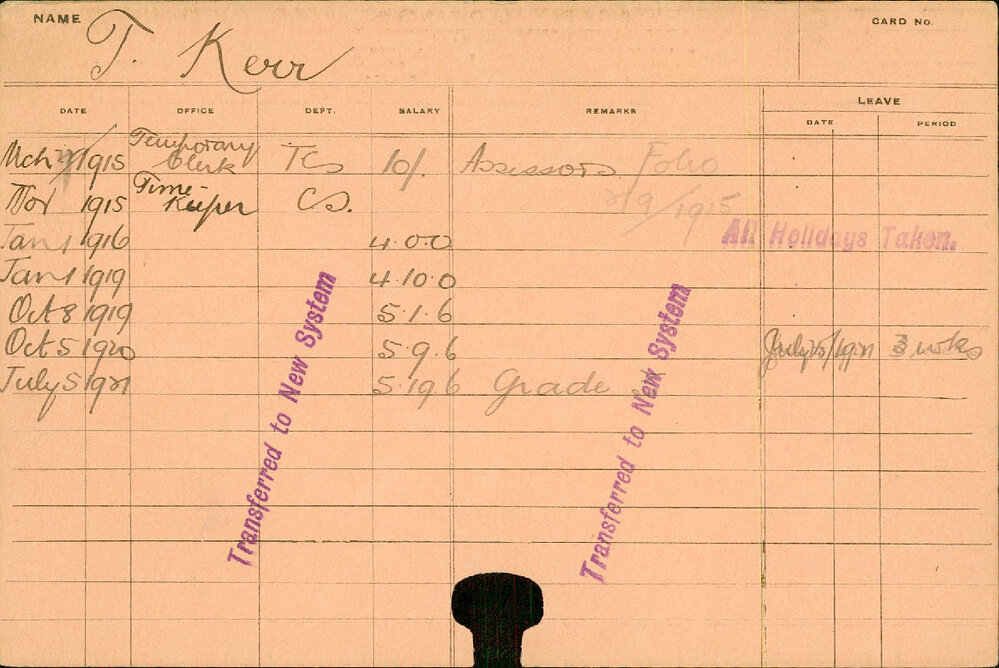 NAME T. Kerr CARD No.
DATE OFFICE DEPT. SALARY REMARKS LEAVE
DATE PERIOD
Mch 1915 Temporary Clerk TCs 10/. Assessors Folio
Nov 1915 Time-Keeper Cs. 21/9/1915
Jan 1 1916 4.0.0 All Holidays Taken.
Jan 1 1919 4.10.0
Oct 8 1919 5.1.6
Oct 5 1920 5.9.6 July 1921 3 wks
July 5 1921 5.19.6 Grade
Transferred to New System
Transferred to New System